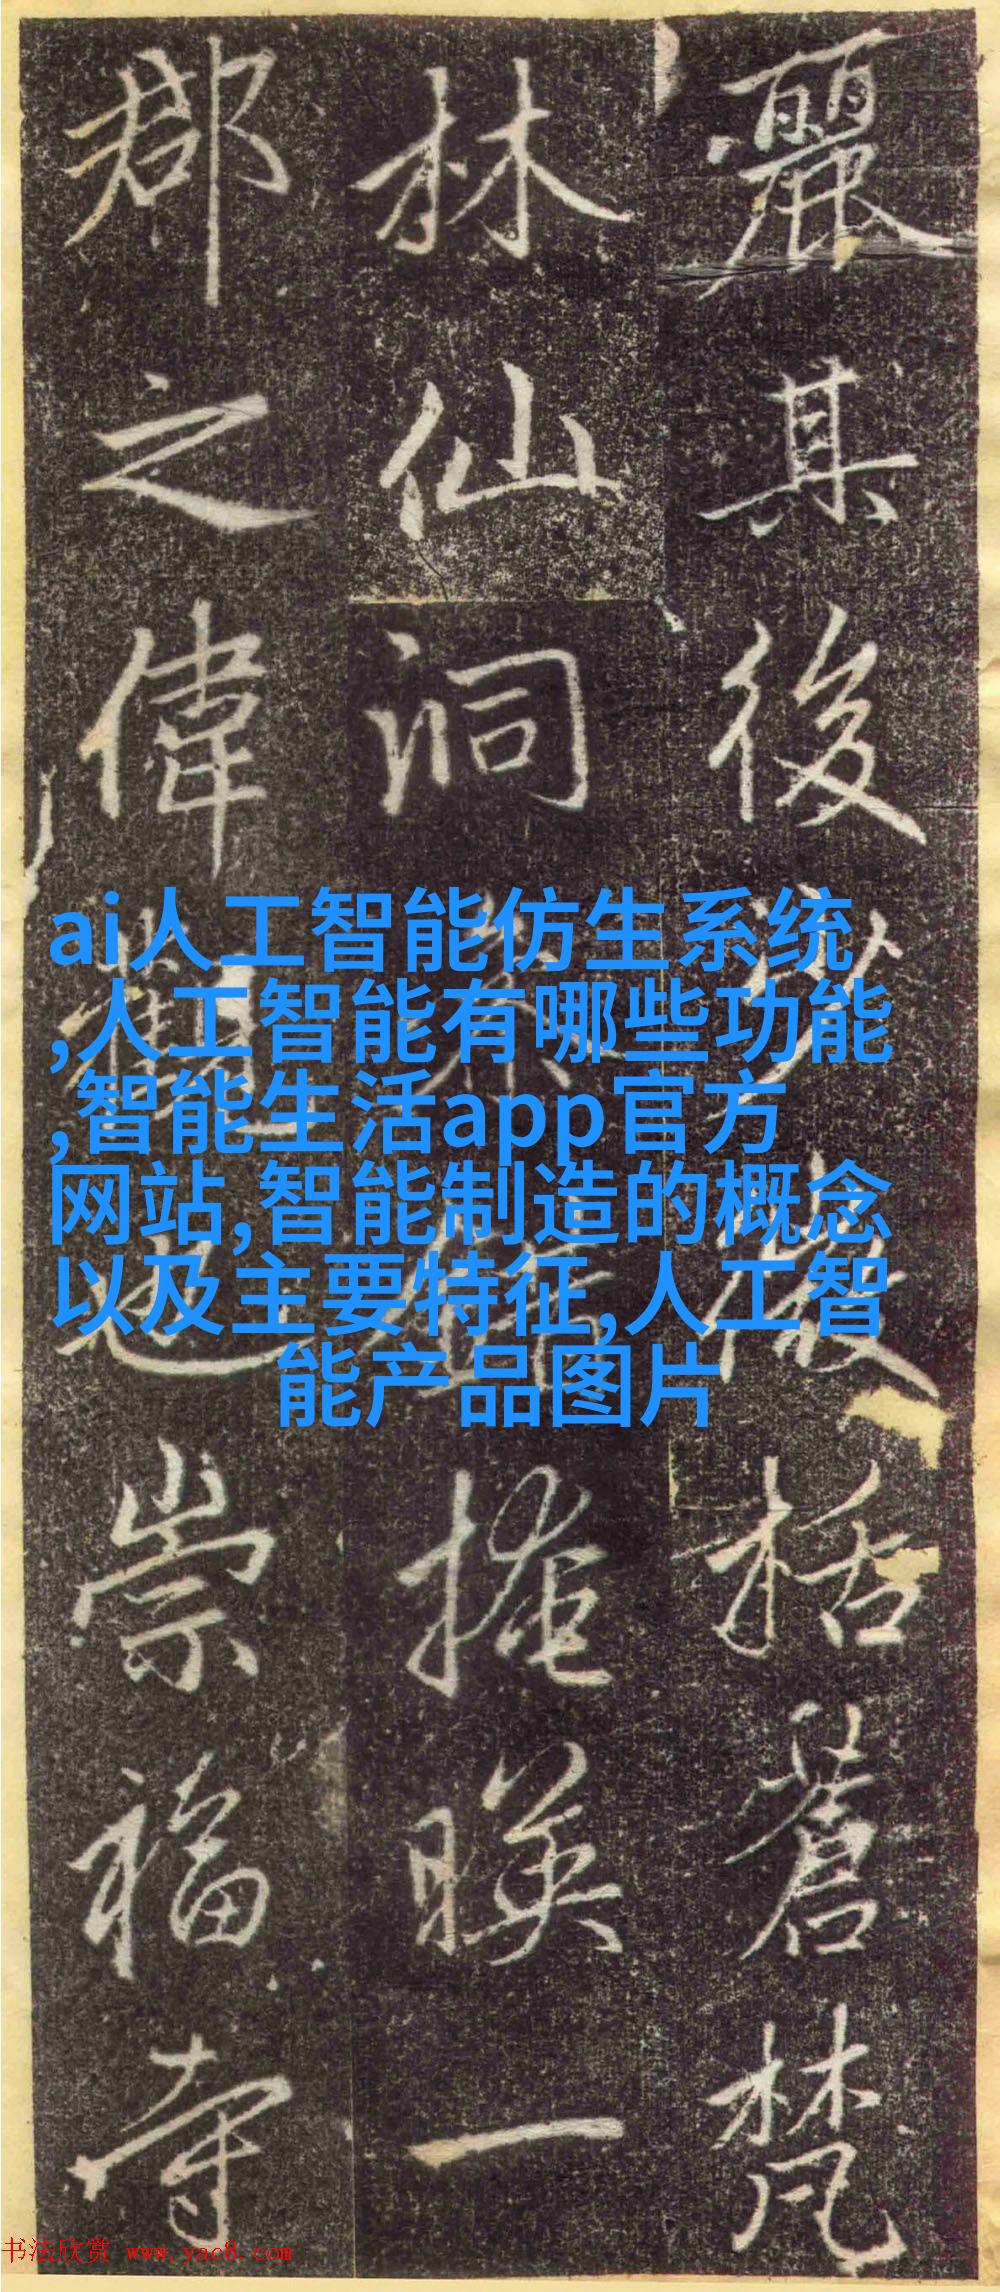 麗其後少微括蒼梵
林仙洞掩暎一
郡之偉觀也崇福寺
ai人工智能仿生系统
,人工智能有哪些功能
,智能生活app官方
网站,智能制造的概念
以及主要特征,人工智
能产品图片
书法欣赏 www.yac8.com